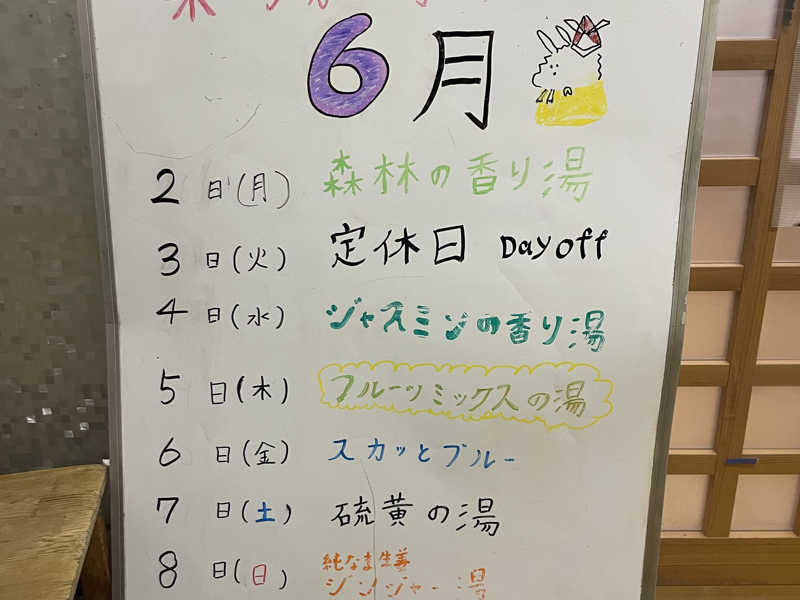 6月
2日(月) 森林の香り湯
3日(火) 定休日 Day off
4日(水) ジャスミンの香り湯
5日(木) フルーツミックスの湯
6日(金) スカッとブルー
7日(土) 硫黄の湯
8日(日) 純なま生姜
ジンジャー湯